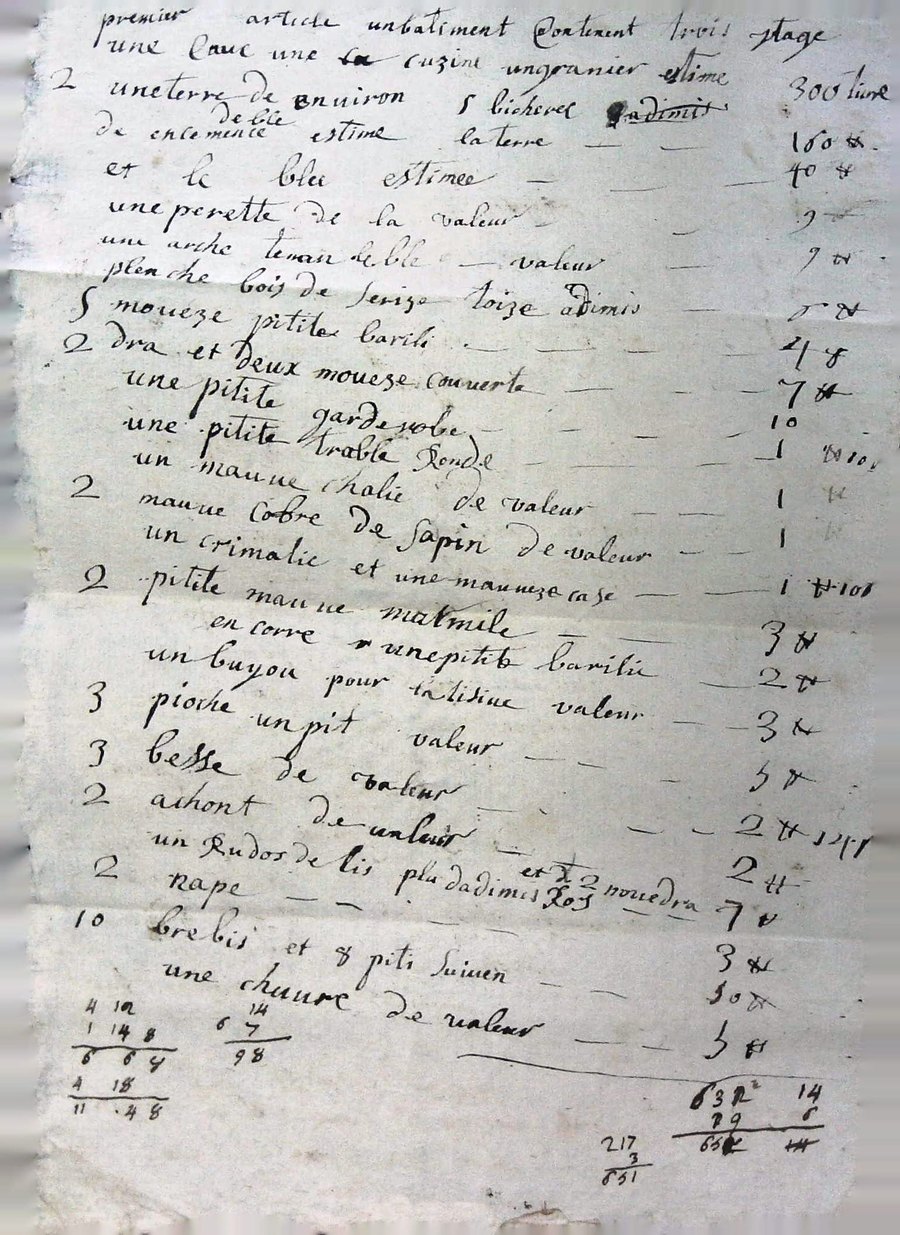 premier article unbatiment Contenent trois stage
une Cave une cuzine ungranier estime 300 livre
2 uneterre de environ 5 bicheree
de ble
de encemence estime laterre — — 160 ₶
et le blee estimee — — 40 ₶
une perette de la valeur — — 9
une arche tenan le ble — valeur — 9 ₶
planche bois de serize toize adimis — ₶
5 moueze pitite barili — — — 4
2 dra et deux moueze couverte — — 7 ₶
une pitite garderobe — — — 10
une pitite trable Ronde — — — 1 ₶ 10
un mauve chalie de valeur — — 1 ₶
2 mauve cofre de sapin de valeur — — 1
un crimalie et une mauveze case — — 1 ₶ 10
2 pitite mauve matmite — — 3 ₶
encorre une pitite barilie — — 2 ₶
un buyou pour la lisive valeur — 3 ₶
3 pioche un pit valeur — — — 5 ₶
3 besse de valeur — — — 2 ₶
2 achont de valeur — 2 ₶
et d 2
un Rudos de lis plu dadimis noue dra 7 ₶
2 nape — — — — — 3 ₶
10 brebis et 8 piti suiven — — 50 ₶
une chuvre de valeur — — — 5 ₶
4 12
1 14 8
6 6 8
4 18
11 4 8
14
6 7
98
632 14
19 6
217
3
651